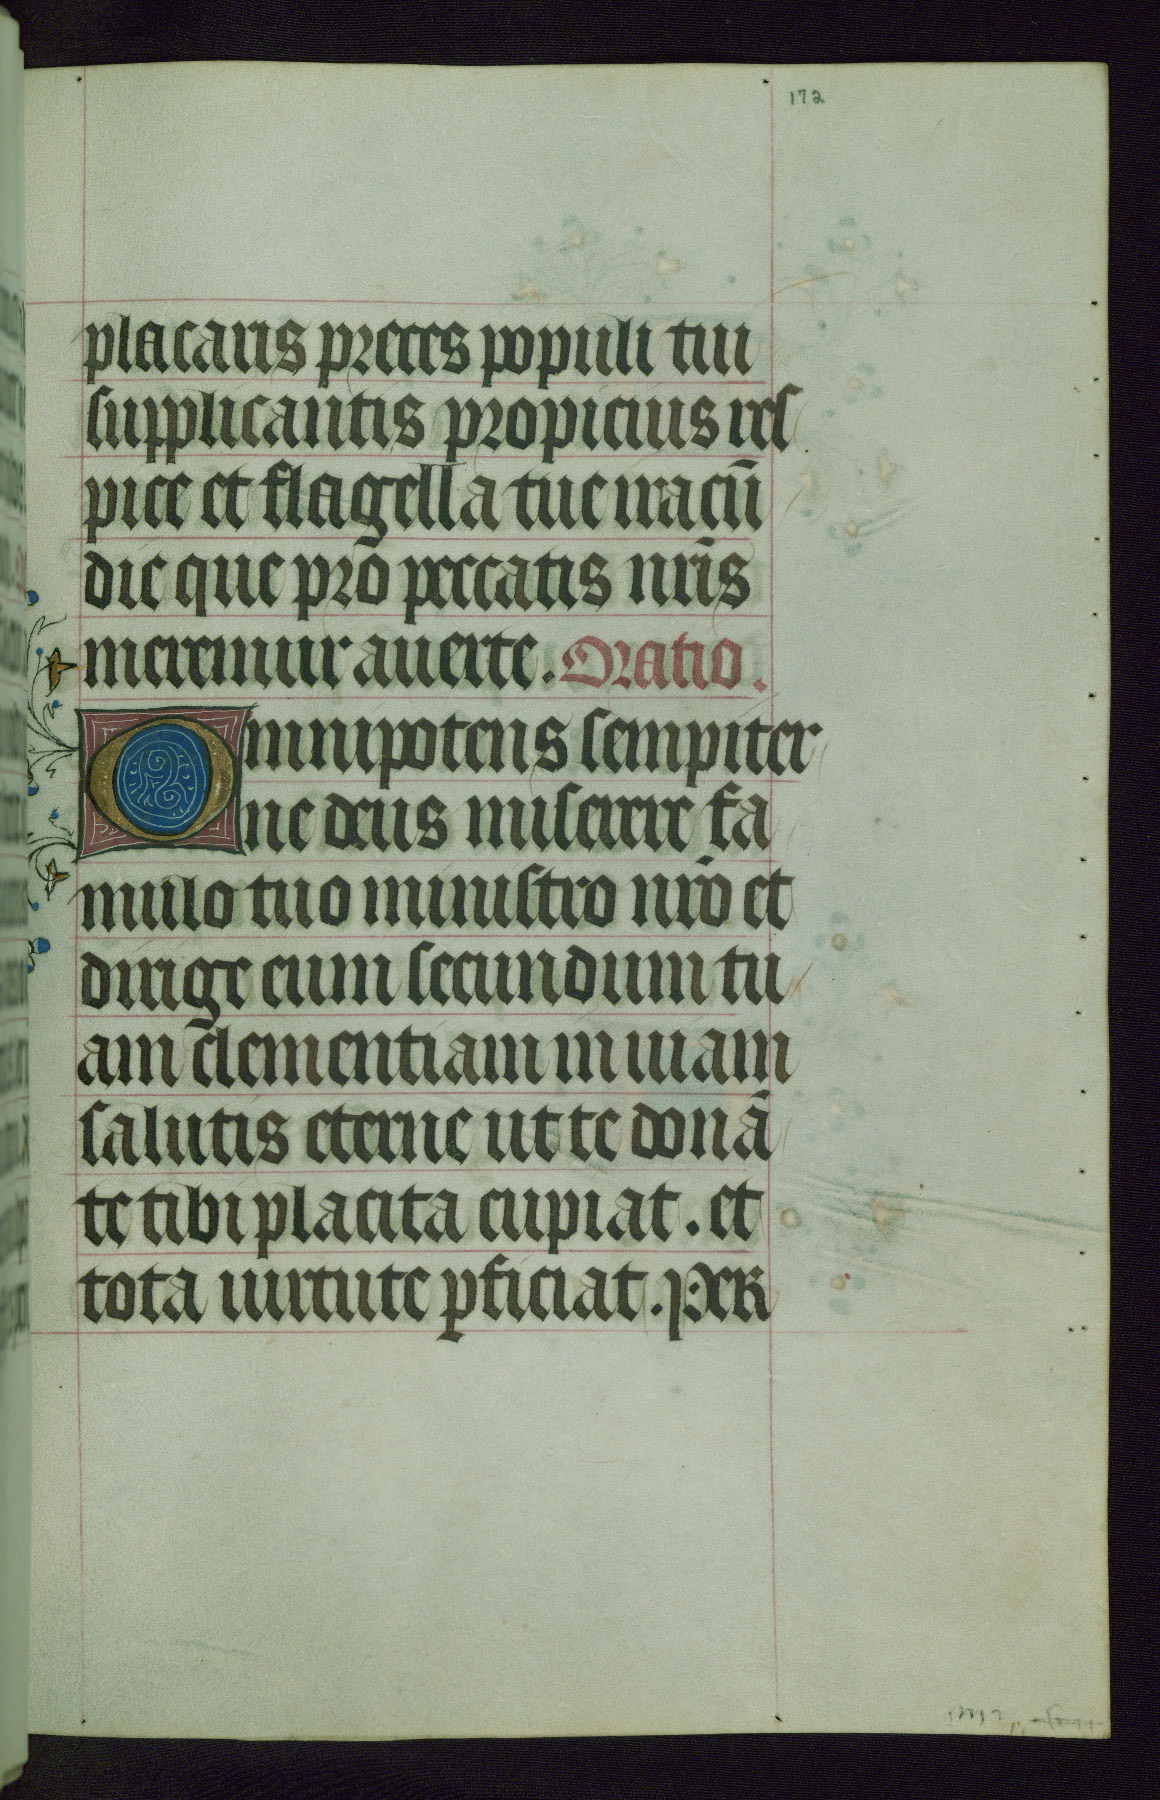 172
placaris preces populi tui
supplicantis propicius res
pice et flagella tue iracū
die que pro peccatis nr̄is
meremur auerte. Oratio.
Omnipotens sempiter
ne deus miserere fa
mulo tuo ministro nr̄o et
dirige eum secundum tu
am clementiam in uiam
salutis eterne ut te donā
te tibi placita cupiat. et
tota uirtute ꝑficiat. Per